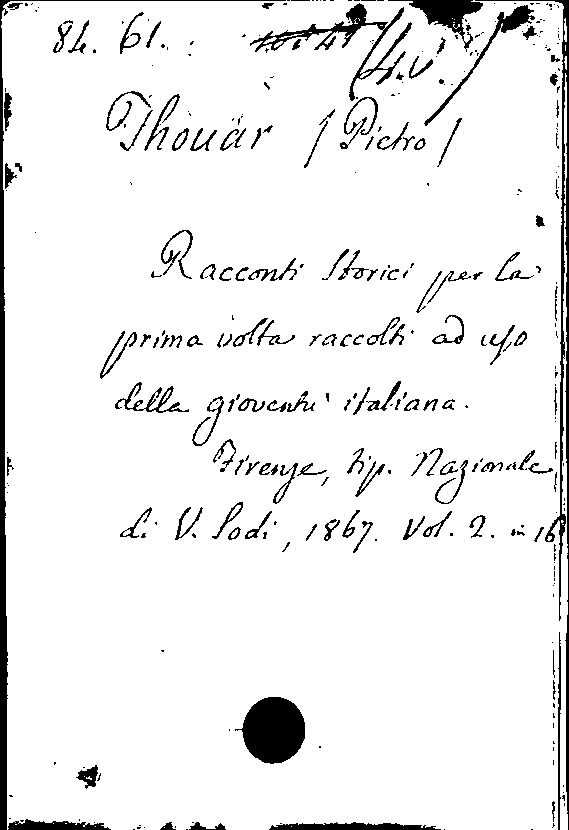 84. 61. (4.v.)
Thouar (Pietro)
Racconti Storici per la
prima volta raccolti ad uso
della gioventù italiana.
Firenze, tip. Nazionale
di V. Sodi, 1867. Vol. 2. in 16